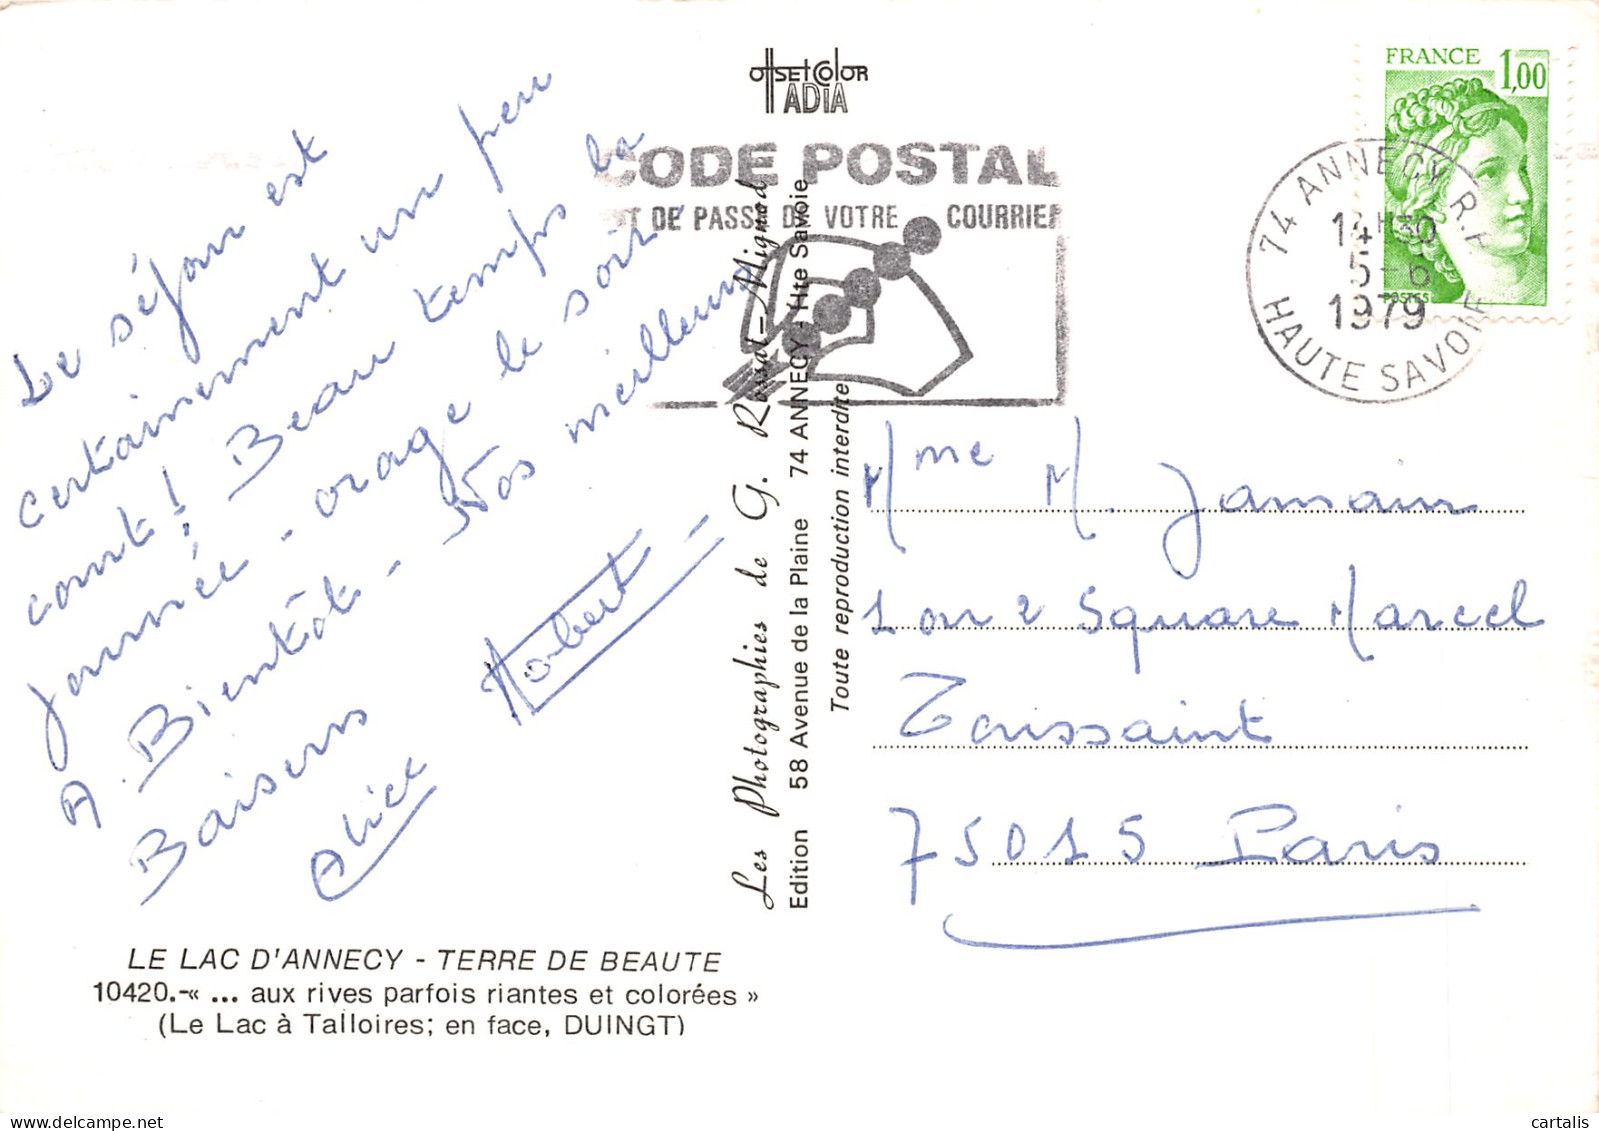 Le séjour est
certainement un peu
court! Beau temps la
journée - orage le soir.
A Bientôt - Nos meilleurs
Baisers
Norbert -
Alice
LE LAC D'ANNECY - TERRE DE BEAUTE
10420.-« ... aux rives parfois riantes et colorées »
(Le Lac à Talloires; en face, DUINGT)
OffSEt COlOR
ADIA
CODE POSTAL
MOT DE PASSE DE VOTRE COURRIER
Les Photographies de G. Rossat-Mignod
Edition 58 Avenue de la Plaine 74 ANNECY - Hte Savoie
Toute reproduction interdite
FRANCE 1,00
POSTES
74 ANNECY R.P.
14H30
5-6
1979
HAUTE SAVOIE
Mme M. Jamain
1 ou 2 Square Marcel
Toussaint
75015 Paris
cartalis